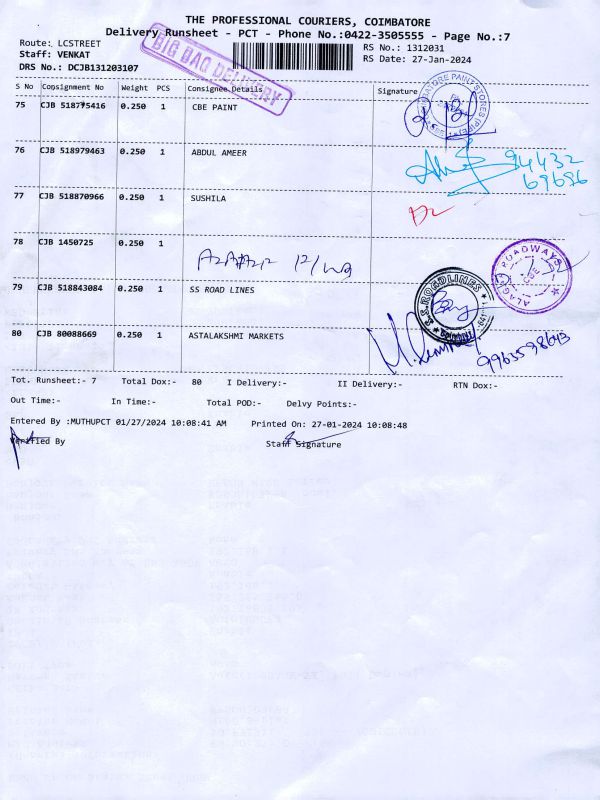 THE PROFESSIONAL COURIERS, COIMBATORE
Delivery Runsheet - PCT - Phone No.:0422-3505555 - Page No.:7
Route: LCSTREET
RS No.: 1312031
Staff: VENKAT
RS Date: 27-Jan-2024
DRS No.: DCJB131203107
BIG BAG DELIVERY
S No Consignment No Weight PCS Consignee Details Signature
75 CJB 518775416 0.250 1 CBE PAINT
76 CJB 518979463 0.250 1 ABDUL AMEER
94432
69696
77 CJB 518870966 0.250 1 SUSHILA
78 CJB 1450725 0.250 1
ALAGU ROADWAYS
CBE
79 CJB 518843084 0.250 1 SS ROAD LINES
S.S.ROADLINES
80 CJB 80088669 0.250 1 ASTALAKSHMI MARKETS
Tot. Runsheet:- 7 Total Dox:- 80 I Delivery:- II Delivery:- RTN Dox:-
Out Time:- In Time:- Total POD:- Delvy Points:-
Entered By :MUTHUPCT 01/27/2024 10:08:41 AM Printed On: 27-01-2024 10:08:48
Verified By Staff Signature